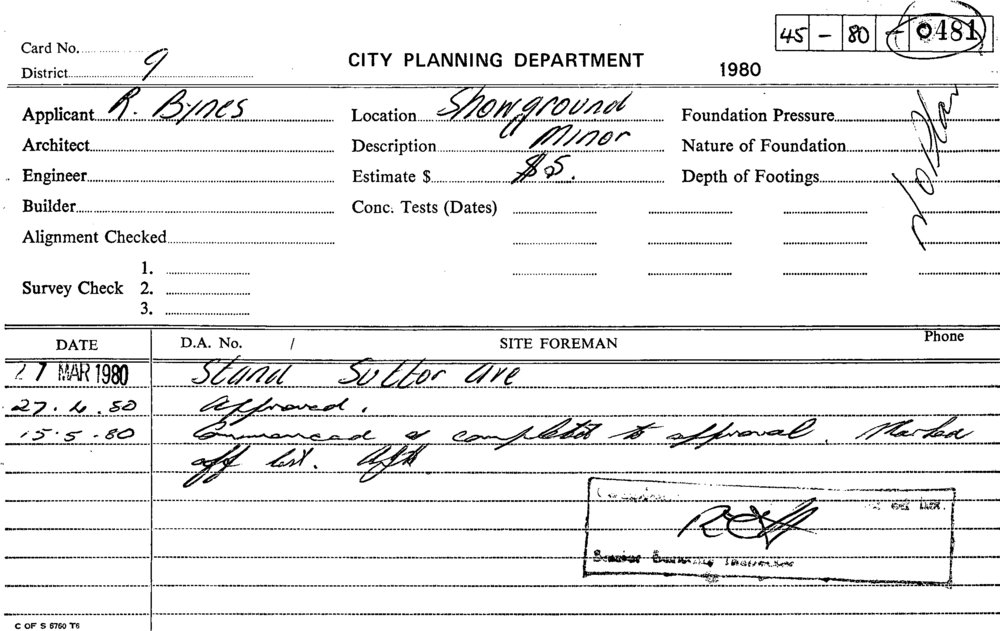 45 - 80 - 0481
Card No.
District 9
CITY PLANNING DEPARTMENT
1980
Applicant R. Bynes
Location Showground
Foundation Pressure
No Plan
Architect
Description Minor
Nature of Foundation
Engineer
Estimate $ $5.
Depth of Footings
Builder
Conc. Tests (Dates)
Alignment Checked
Survey Check
1.
2.
3.
DATE
D.A. No. /
SITE FOREMAN
Phone
27 MAR 1980 Stand Suttor Ave
27.4.80 Approved.
15.5.80 Commenced & completed to approval. Marked
off list.
Senior Building Inspector
C OF S 6760 T6